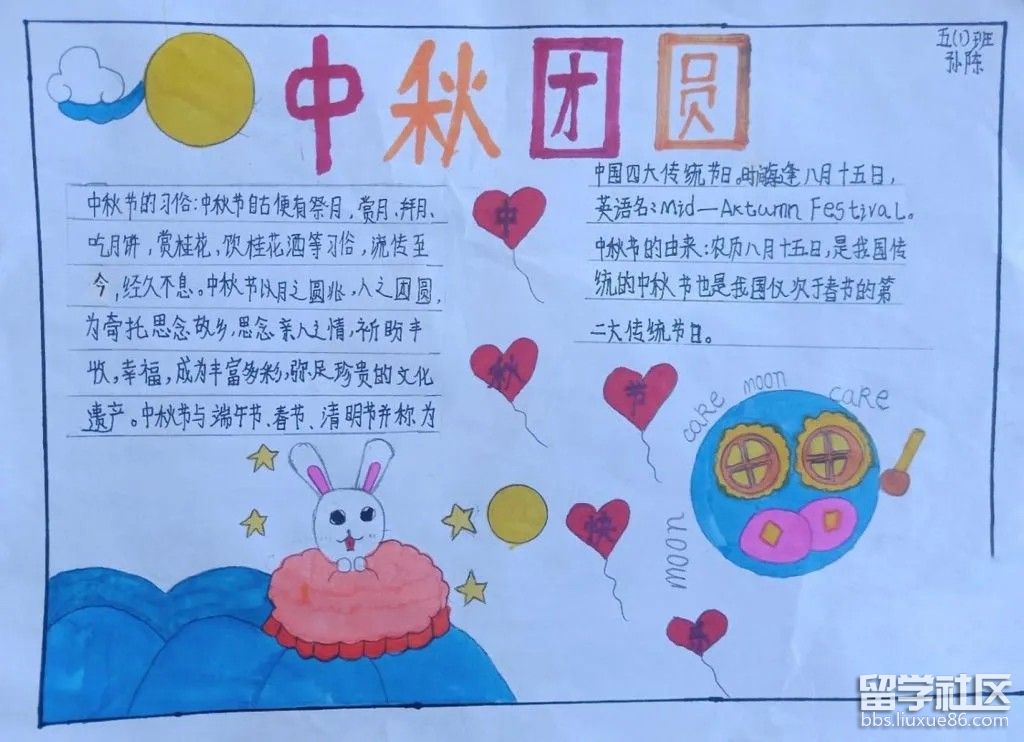 中秋团圆
五(1)班
孙陈
中秋节的习俗:中秋节自古便有祭月、赏月、拜月、
吃月饼、赏桂花、饮桂花酒等习俗,流传至
今,经久不息。中秋节以月之圆兆人之团圆,
为寄托思念故乡,思念亲人之情,祈盼丰
收,幸福,成为丰富多彩,弥足珍贵的文化
遗产。中秋节与端午节、春节、清明节并称为
中国四大传统节日。时间每逢八月十五日,
英语名:Mid—Aktumn Festival。
中秋节的由来:农历八月十五日,是我国传
统的中秋节也是我国仅次于春节的第
二大传统节日。
中
秋
节
快
乐
cake moon cake
moon
留学社区
bbs.liuxue86.com